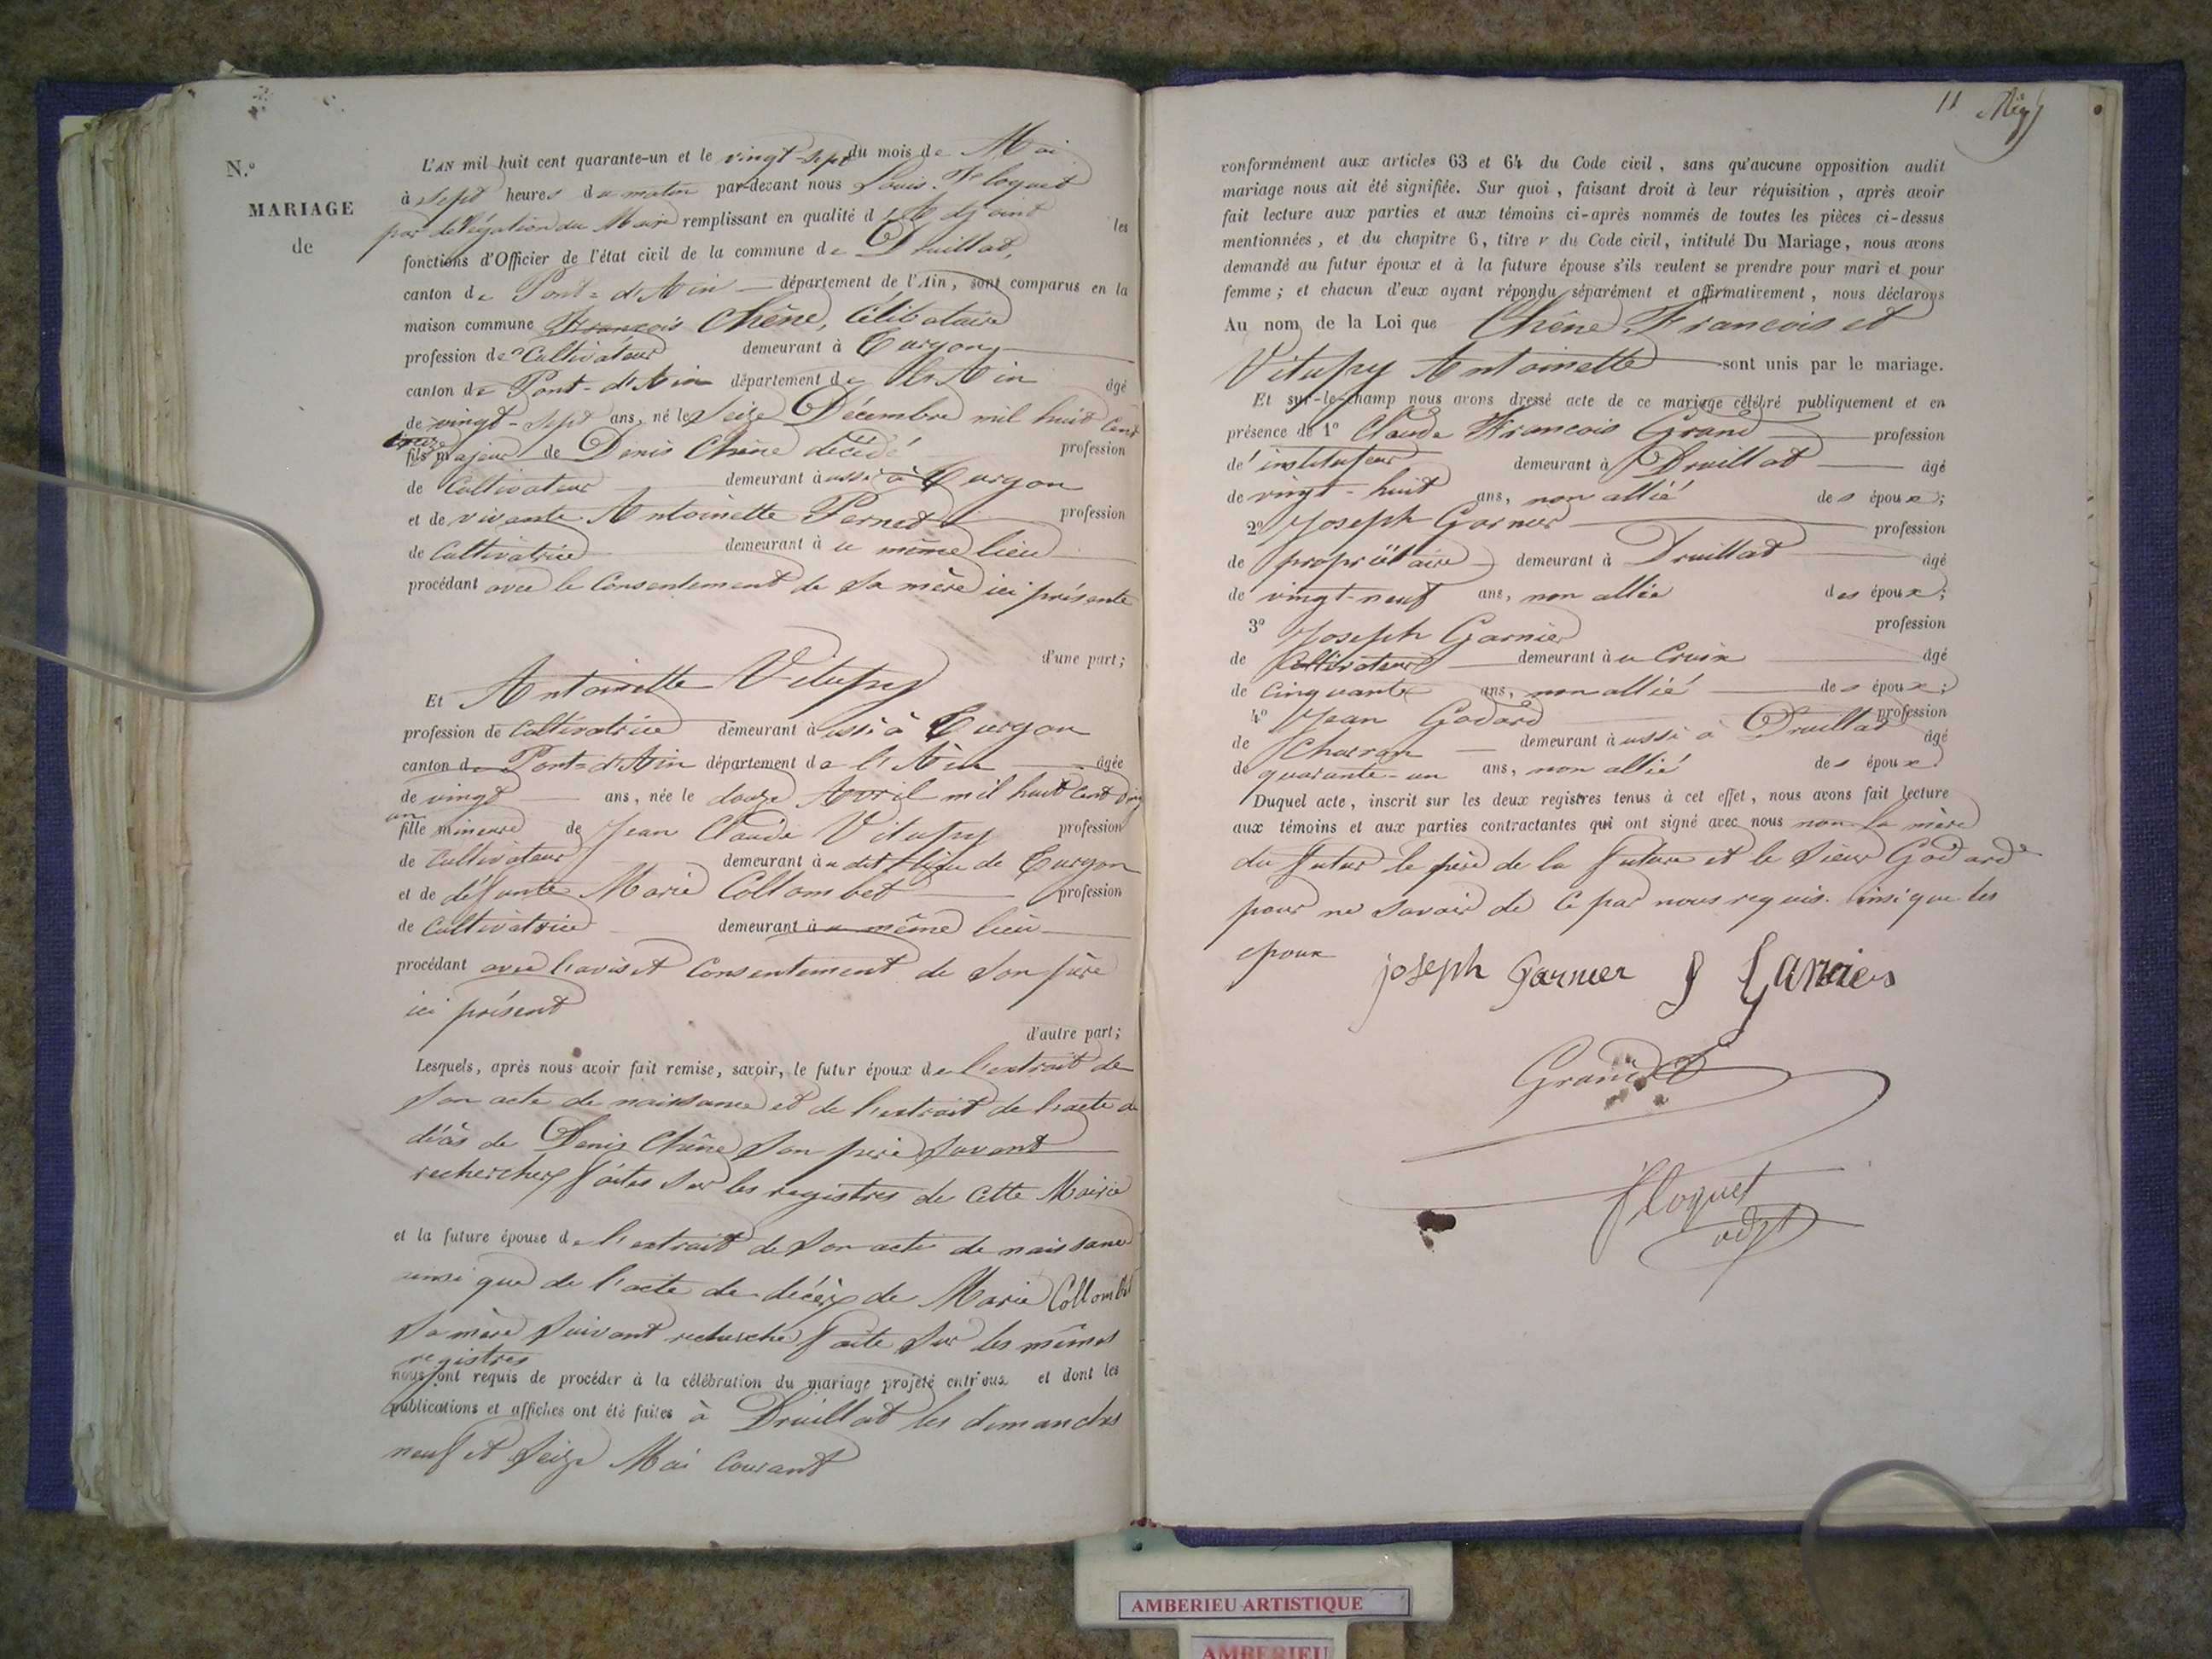 N.º
MARIAGE
de
L'AN mil huit cent quarante-un et le vingt-sept du mois de Mai
à sept heures du matin par-devant nous Louis Floquet
par délégation du Maire remplissant en qualité d'adjoint les
fonctions d'Officier de l'état civil de la commune de Druillat,
canton de Pont-d'Ain département de l'Ain, sont comparus en la
maison commune François Chêne, Célibataire
profession de Cultivateur demeurant à Turgon
canton de Pont-d'Ain département de l'Ain âgé
de vingt-sept ans, né le seize Décembre mil huit Cent
treize
fils majeur de Denis Chêne décédé profession
de Cultivateur demeurant aussi à Turgon
et de vivante Antoinette Pernet profession
de Cultivatrice demeurant au même lieu
procédant avec le Consentement de sa mère ici présente
d'une part;
Et Antoinette Vitupy
profession de Cultivatrice demeurant aussi à Turgon
canton de Pont-d'Ain département de l'Ain âgée
de vingt ans, née le douze Avril mil huit Cent vingt
un
fille mineure de Jean Claude Vitupy profession
de Cultivateur demeurant au dit lieu de Turgon
et de défunte Marie Collombet profession
de Cultivatrice demeurant au même lieu
procédant avec l'avis et Consentement de son père
ici présent
d'autre part;
Lesquels, après nous avoir fait remise, savoir, le futur époux de l'extrait de
son acte de naissance et de l'extrait de l'acte de
décès de Denis Chêne son père suvant
recherches faites sur les registres de cette Mairie
et la future épouse de l'extrait de son acte de naissance
ainsi que de l'acte de décès de Marie Collombet
sa mère suivant recherche faite sur les mêmes
registres
nous ont requis de procéder à la célébration du mariage projeté entr'eux et dont les
publications et affiches ont été faites à Druillat les dimanches
neuf et seize Mai Courant
11
conformément aux articles 63 et 64 du Code civil, sans qu'aucune opposition audit
mariage nous ait été signifiée. Sur quoi, faisant droit à leur réquisition, après avoir
fait lecture aux parties et aux témoins ci-après nommés de toutes les pièces ci-dessus
mentionnées, et du chapitre 6, titre v du Code civil, intitulé Du Mariage, nous avons
demandé au futur époux et à la future épouse s'ils veulent se prendre pour mari et pour
femme; et chacun d'eux ayant répondu séparément et affirmativement, nous déclarons
Au nom de la Loi que Chêne François et
Vitupy Antoinette sont unis par le mariage.
Et sur-le-champ nous avons dressé acte de ce mariage célébré publiquement et en
présence de 1º Claude François Grand profession
d'instituteur demeurant à Druillat âgé
de vingt-huit ans, non allié des époux;
2º Joseph Garnier profession
de propriétaire demeurant à Druillat âgé
de vingt-neuf ans, non allié des époux;
3º Joseph Garnier profession
de Cultivateur demeurant au Croix âgé
de Cinquante ans, non allié des époux;
4º Jean Godard profession
de Charron demeurant aussi à Druillat âgé
de quarante-un ans, non allié des époux.
Duquel acte, inscrit sur les deux registres tenus à cet effet, nous avons fait lecture
aux témoins et aux parties contractantes qui ont signé avec nous non la mère
du futur le père de la future et le sieur Godard
pour ne savoir de ce par nous requis. ainsi que les
epoux
joseph Garnier J Garnier
Grand
floquet
adjt
AMBERIEU ARTISTIQUE
AMBERIEU